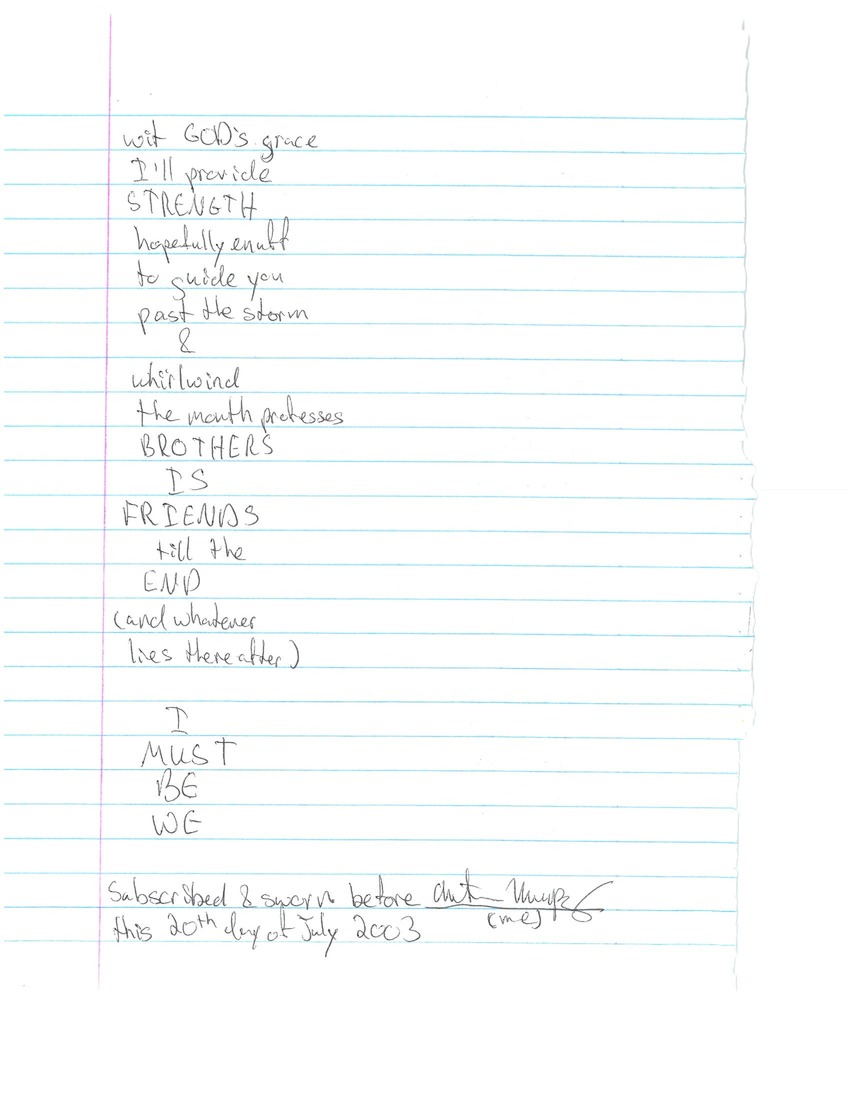 wit GOD's grace
I'll provide
STRENGTH
hopefully enuff
to guide you
past the storm
&
whirlwind
the mouth professes
BROTHERS
IS
FRIENDS
till the
END
(and whatever
lies thereafter)
I
MUST
BE
WE
Subscribed & sworn before
(me)
this 20th day of July 2003